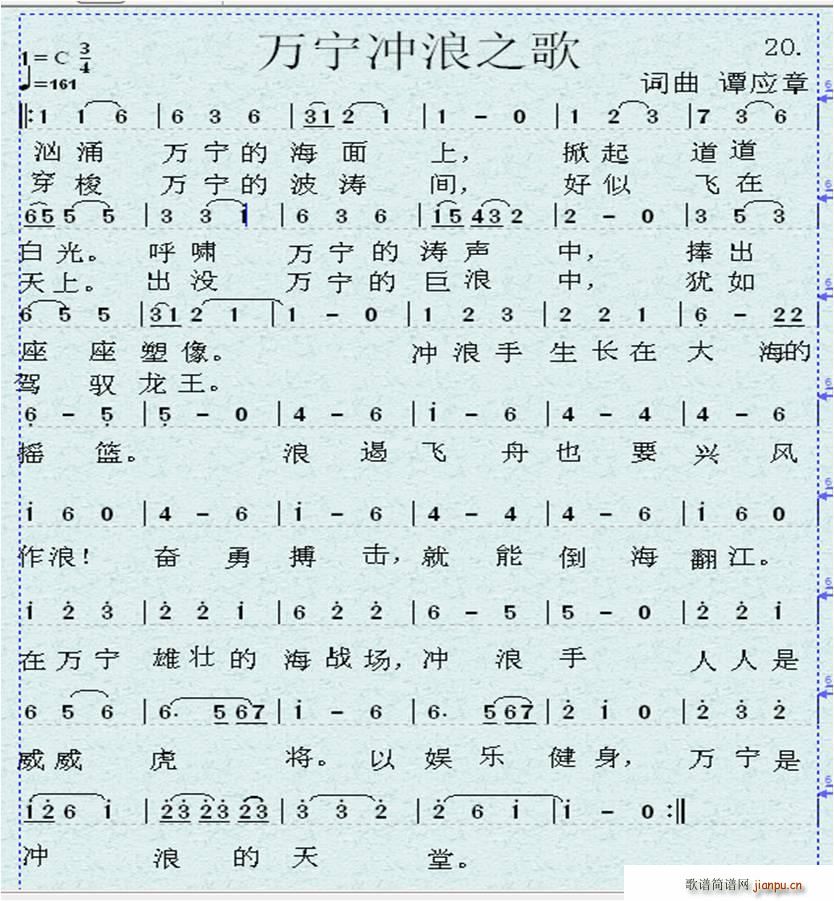 万宁冲浪之歌
20.
1=C 3/4
♩=161
词曲 谭应章
‖:1 1 6 |6 3 6 |31 2 1 |1 - 0 |1 2 3 |7 3 6
汹涌 万宁的海面 上， 掀起 道道
穿梭 万宁的波涛 间， 好似 飞在
65 5 5 |3 3 i |6 3 6 |i5 43 2 |2 - 0 |3 5 3
白光。 呼啸 万宁的涛声 中， 捧出
天上。 出没 万宁的巨浪 中， 犹如
6 5 5 |31 2 1 |1 - 0 |1 2 3 |2 2 1 |6̣ - 22
座 座塑像。 冲浪手生长在大海的
驾 驭龙王。
6̣ - 5̣ |5̣ - 0 |4 - 6 |i - 6 |4 - 4 |4 - 6
摇 篮。 浪 遏飞 舟也 要兴 风
i 6 0 |4 - 6 |i - 6 |4 - 4 |4 - 6 |i 6 0
作浪！ 奋 勇搏 击，就 能倒 海翻江。
i 2̇ 3̇ |2̇ 2̇ i |6 2̇ 2̇ |6 - 5 |5 - 0 |2̇ 2̇ i
在万宁 雄壮的海战场，冲 浪手 人人是
6 5 6 |6· 5 67 |i - 6 |6· 5 67 |2̇ i 0 |2̇ 3̇ 2̇
威威 虎 将。以娱乐健身，万宁是
i2̇ 6 i |2̇3̇ 2̇3̇ 2̇3̇ |3̇ 3̇ 2̇ |2̇ 6 i |i - 0 :‖
冲 浪的天 堂。
歌谱简谱网 jianpu.cn